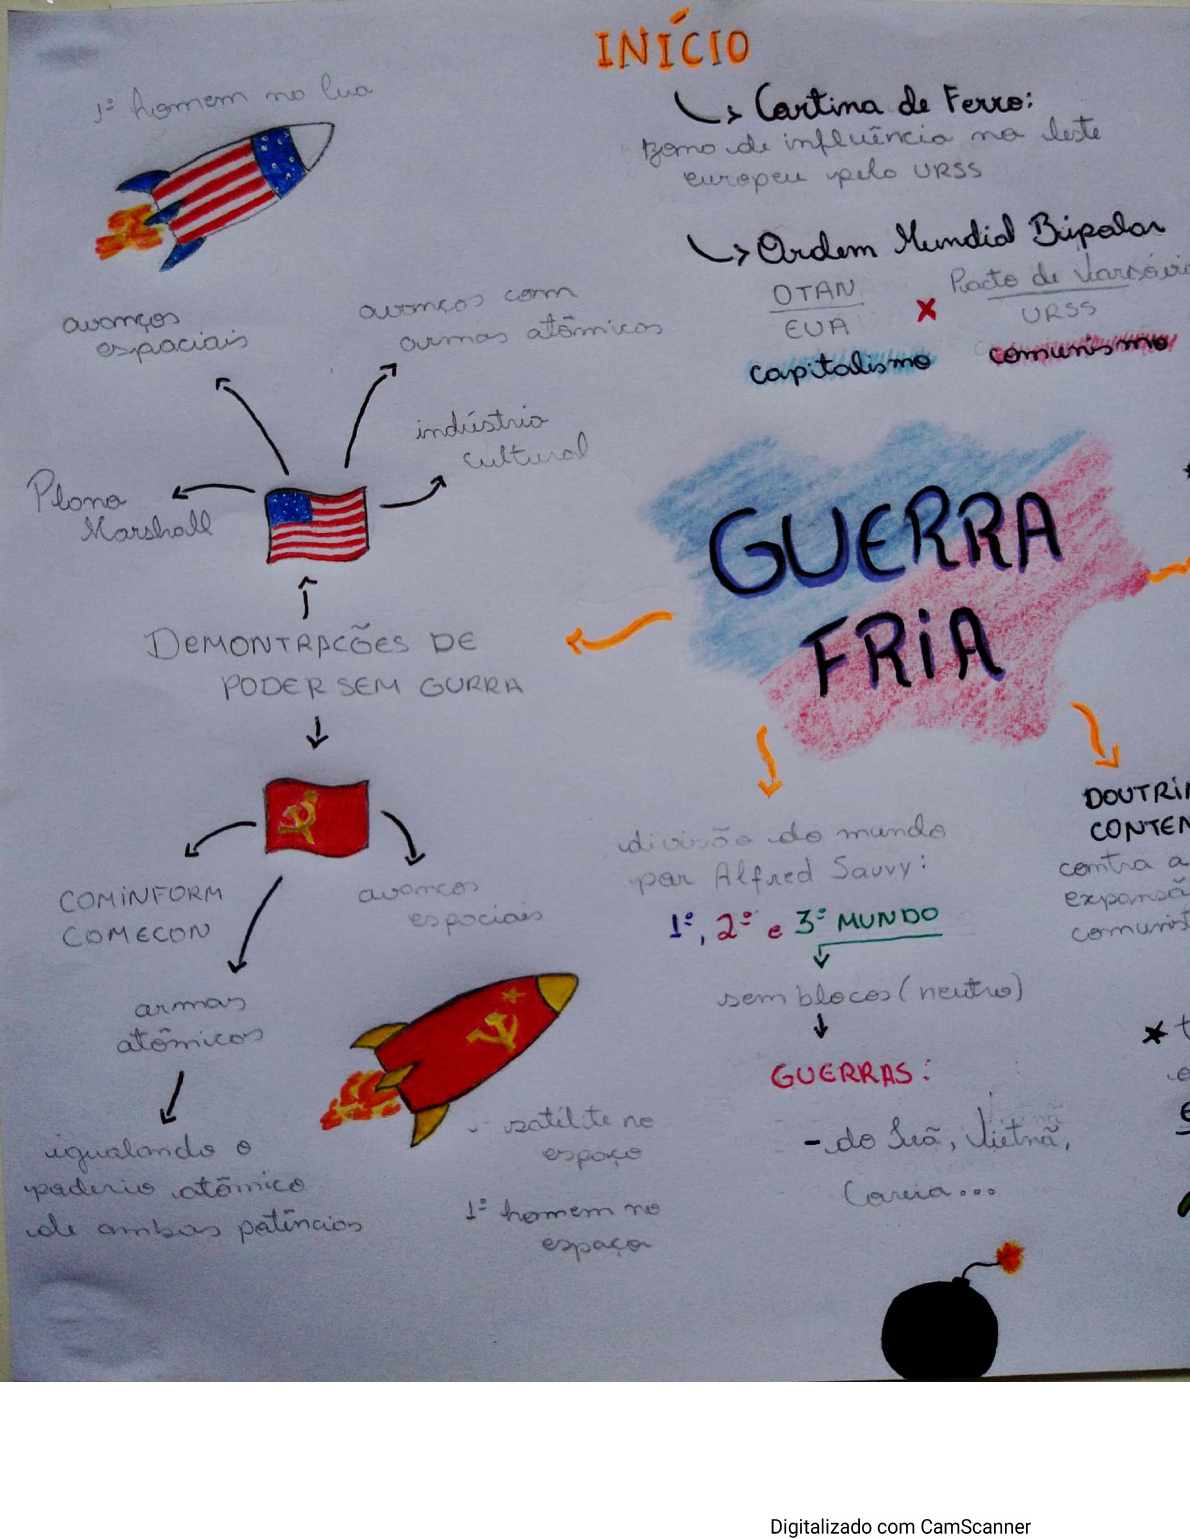 INÍCIO
↳ Cortina de Ferro:
zona de influência no leste
europeu pela URSS
↳ Ordem Mundial Bipolar
OTAN
EUA
capitalismo
x
Pacto de Varsóvia
URSS
comunismo
1º homem na lua
avanços
espaciais
avanços com
armas atômicas
indústria
cultural
Plano
Marshall
DEMONTRAÇÕES DE
PODER SEM GURRA
GUERRA
FRIA
COMINFORM
COMECON
avanços
espaciais
armas
atômicas
igualando o
poderio atômico
de ambas potências
satélite no
espaço
1º homem no
espaço
divisão do mundo
por Alfred Sauvy:
1º, 2º e 3º MUNDO
sem blocos (neutro)
GUERRAS:
- do Suã, Vietnã,
Coreia...
DOUTRI
CONTEN
contra a
expansã
comunist
Digitalizado com CamScanner